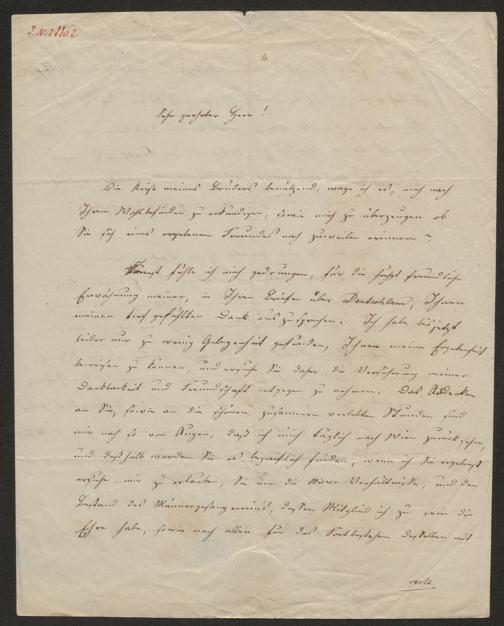 Sehr geehrter Herr!
Die Reise meines Bruders benützend, wage ich es, mich nach
Ihrem Wohlbefinden zu erkundigen, sowie mich zu überzeugen ob
Sie sich eines ergebenen Freundes noch zuweilen erinnern –
fühle ich mich gedrungen, für die höchst freundliche
Erwähnung meiner, in Ihren Briefen über Deutschland, Ihnen
meinen tief gefühlten Dank auszusprechen. Ich habe bis jetzt
leider nur zu wenig Gelegenheit gefunden, Ihnen meine Ergebenheit
beweisen zu können, und ersuche Sie daher die Versicherung meiner
Dankbarkeit und Freundschaft entgegen zu nehmen. Das Andenken
an Sie, sowie an die schönen, zusammen verlebten Stunden sind
mir noch so vor Augen, daß ich mich täglich nach Wien zurück sehne,
und deßhalb werden Sie es begreiflich finden, wenn ich Sie ergebenst
ersuche mir zu erlauben, Sie um die Wiener Verhältnisse, und den
Bestand des Männergesangvereins, dessen Mitglied ich zu sein die
Ehre habe, sowie nach allem für das Fortbestehen desselben mit